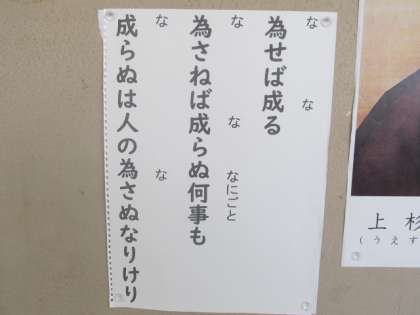 上杉
(うえす
為せば成る
な な
為さねば成らぬ何事も
な な なにごと
成らぬは人の為さぬなりけり
な な